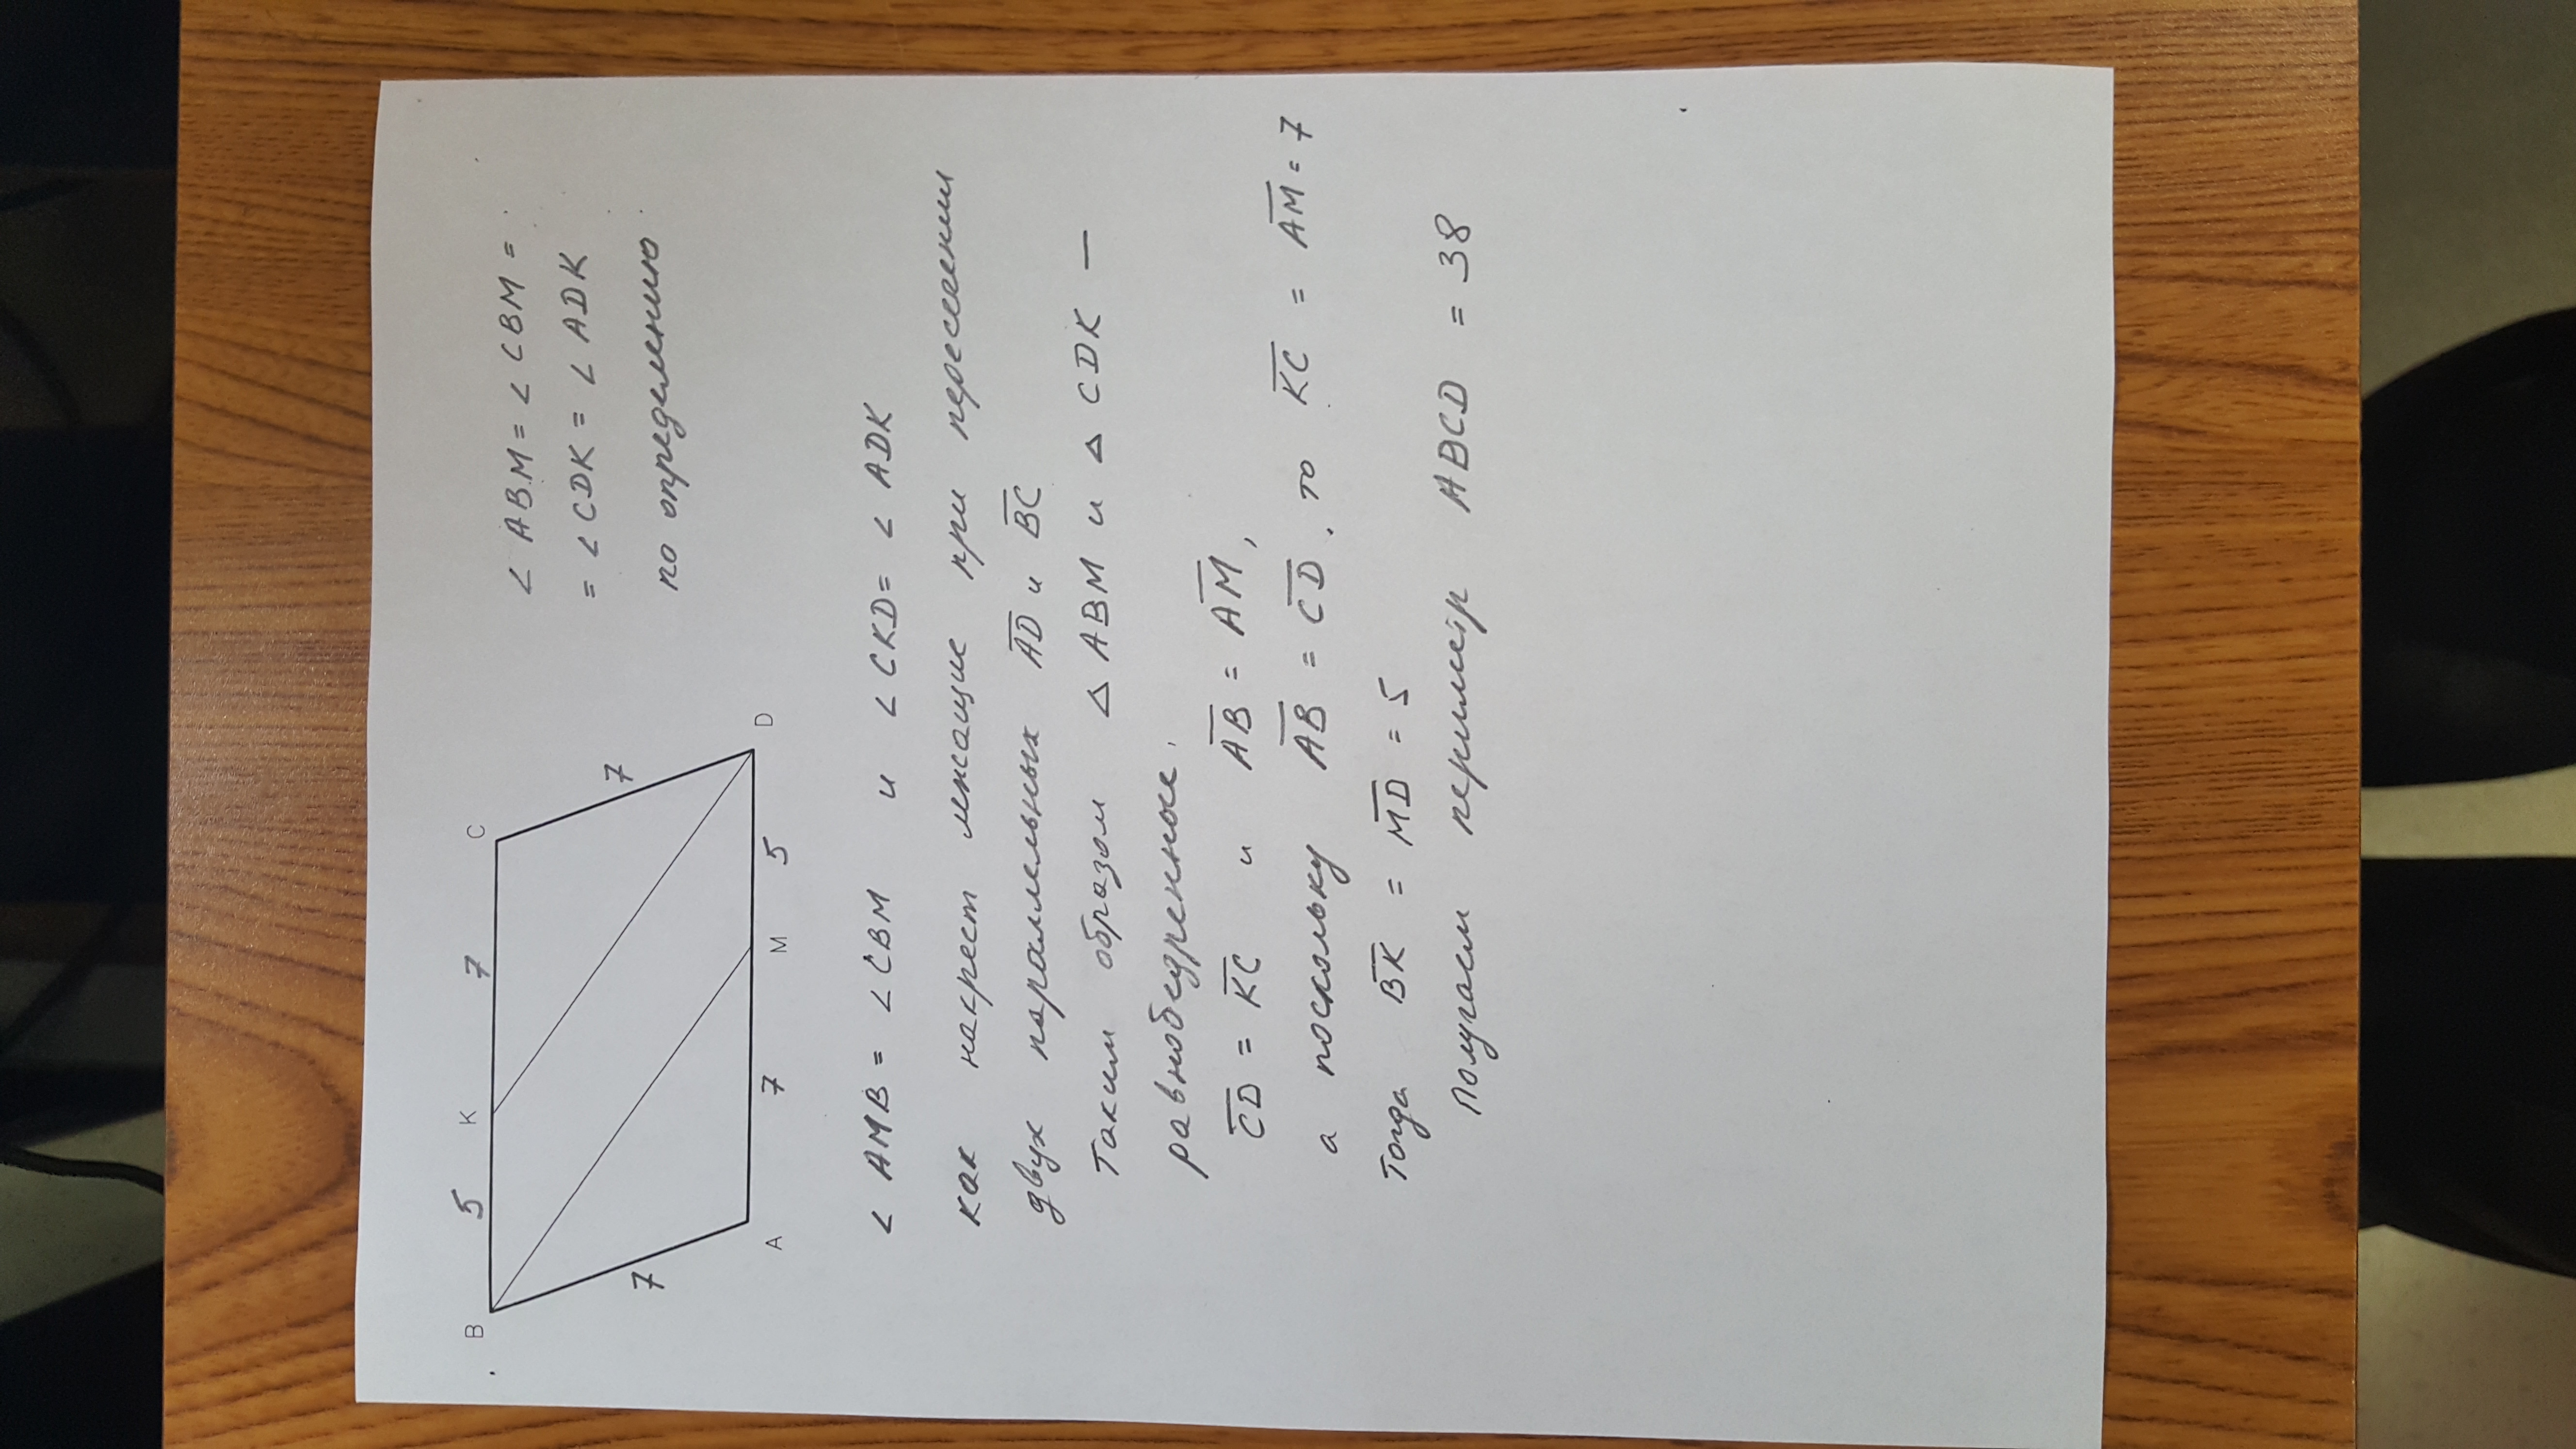 B 5 K 7 C
7 7
A 7 M 5 D
∠ ABM = ∠ CBM =
= ∠ CDK = ∠ ADK
по определению
∠ AMB = ∠ CBM и ∠ CKD = ∠ ADK
как накрест лжащие при пересечении
двух параллельных A̅D̅ и B̅C̅
Таким образом △ ABM и △ CDK —
равнобедренные.
C̅D̅ = K̅C̅ и A̅B̅ = A̅M̅,
а поскольку A̅B̅ = C̅D̅, то K̅C̅ = A̅M̅ = 7
Тогда B̅K̅ = M̅D̅ = 5
Получаем периметр ABCD = 38